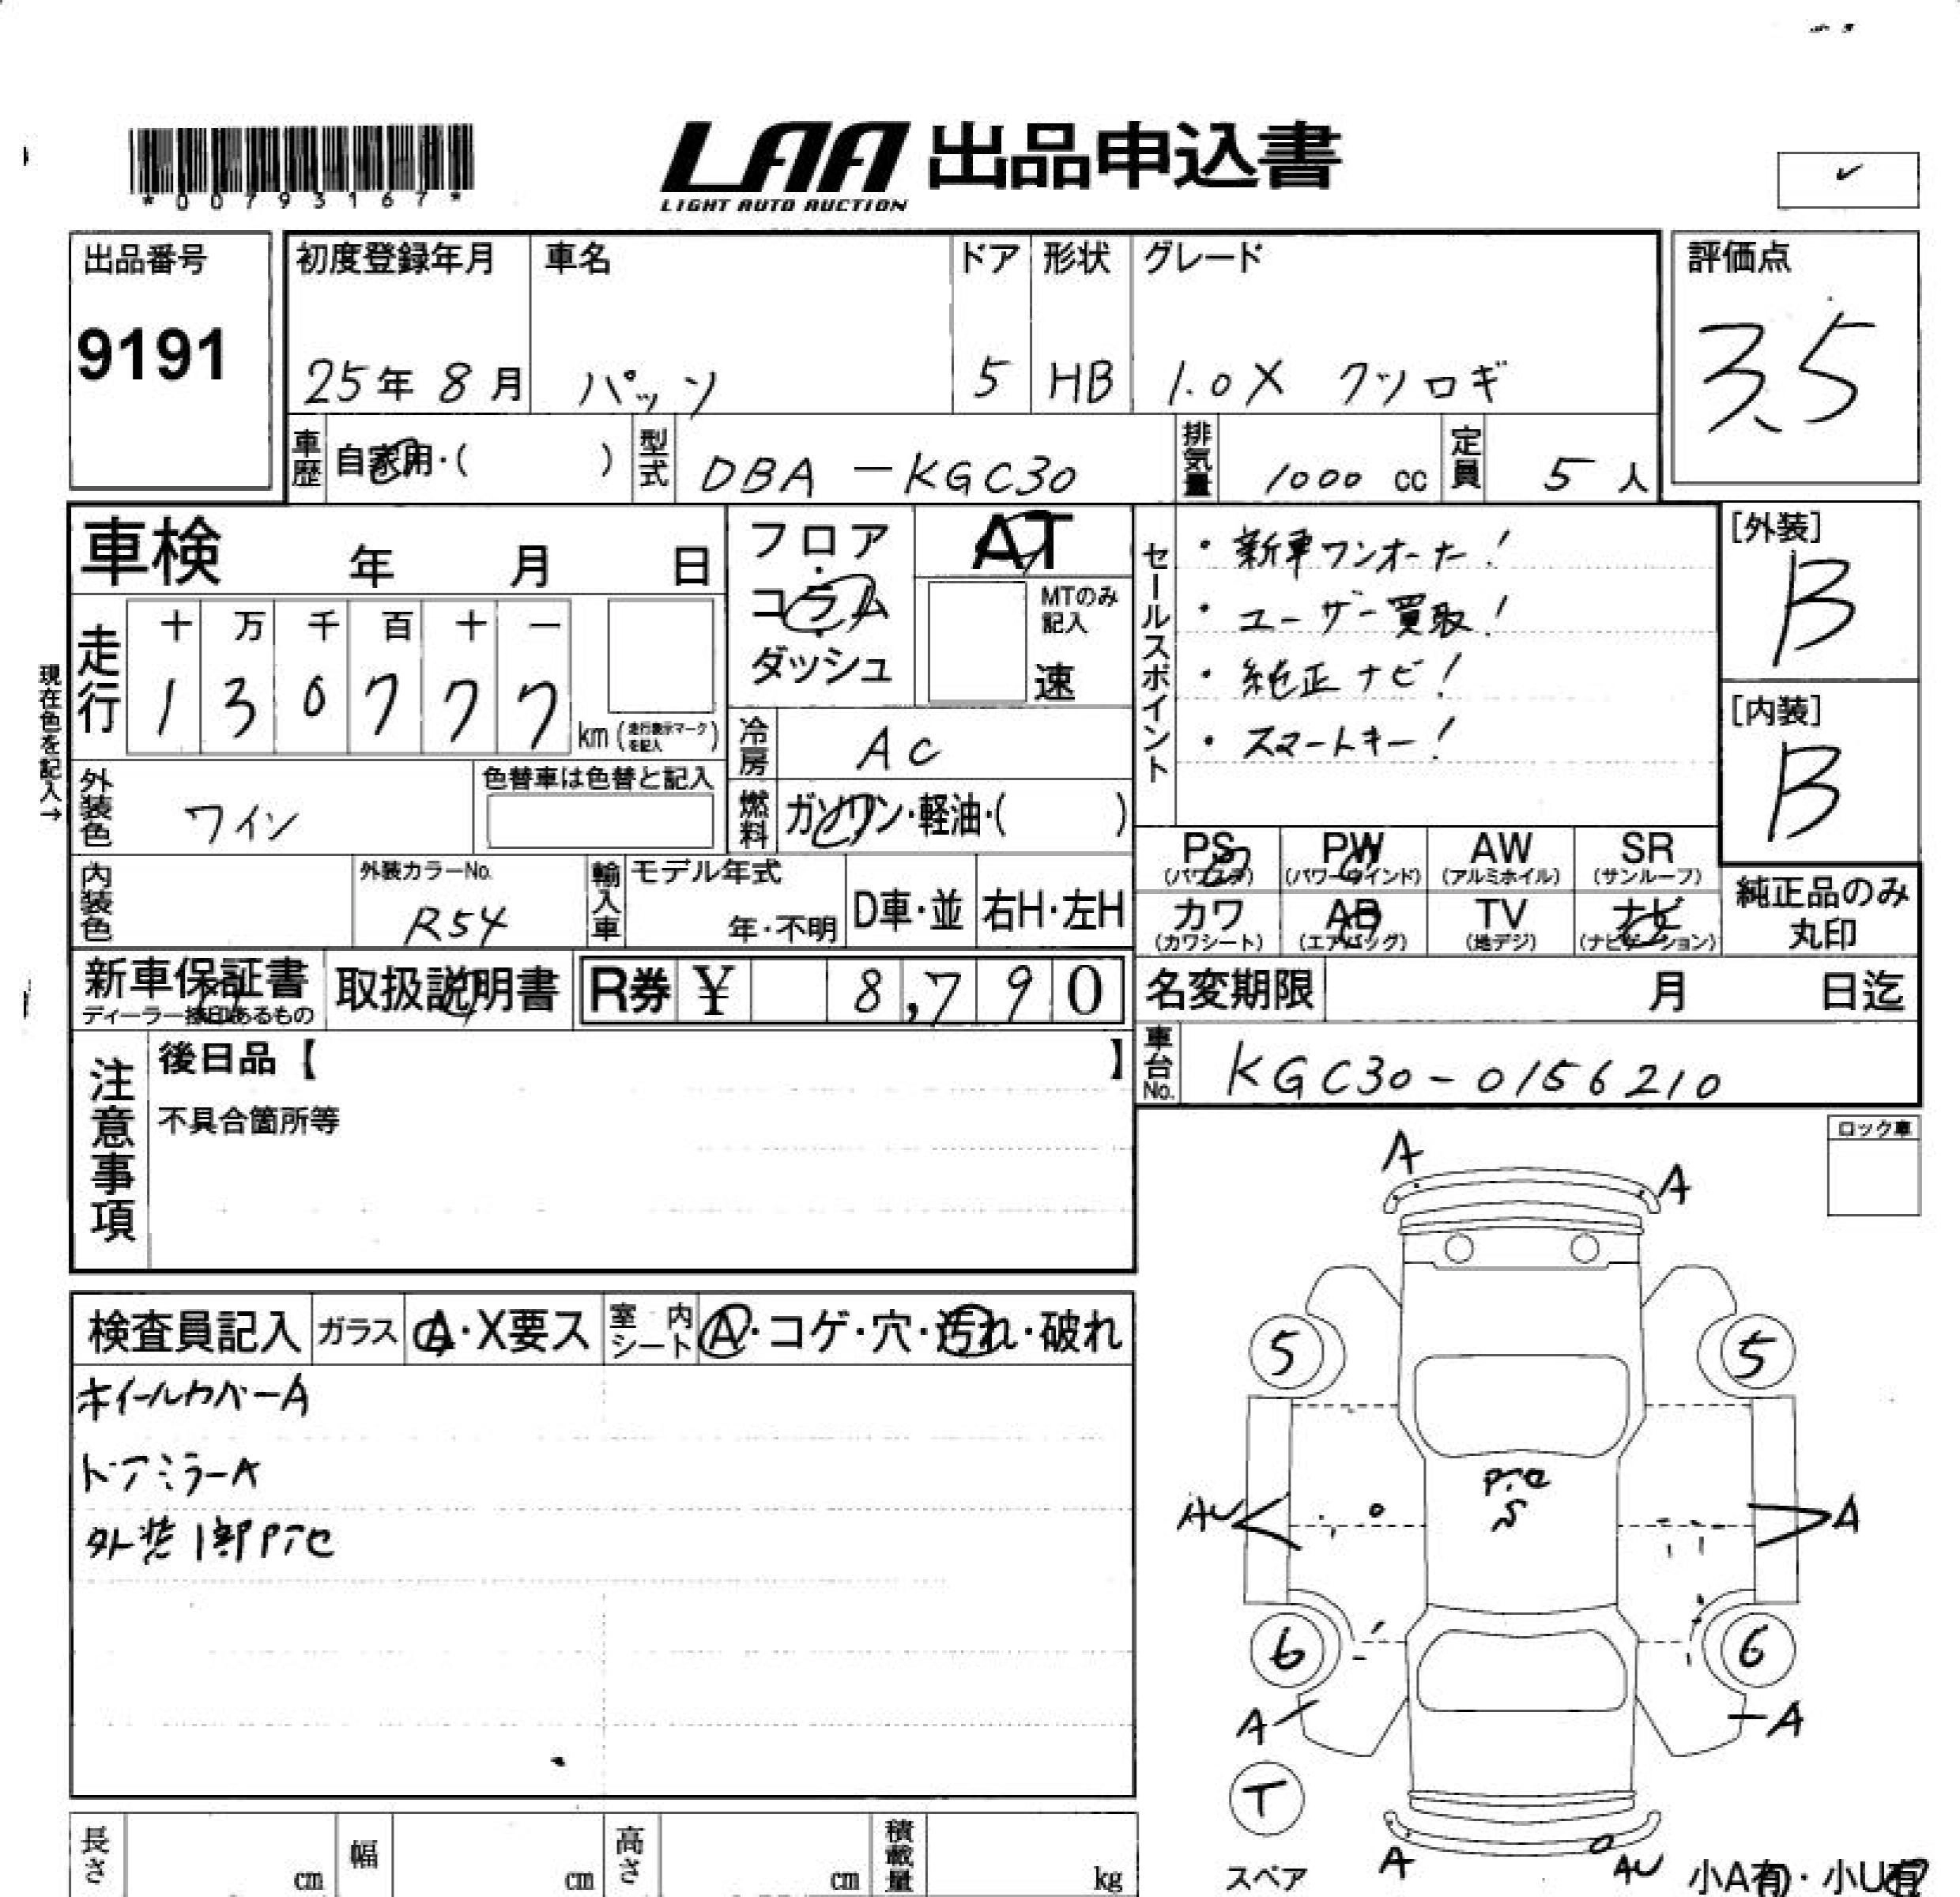 *00793167*
LAA 出品申込書
LIGHT AUTO AUCTION
出品番号
9191
初度登録年月
25年 8月
車名
パッソ
ドア
5
形状
HB
グレード
1.0X クツロギ
評価点
3.5
車歴
自家用・( )
型式
DBA-KGC30
排気量
1000 cc
定員
5 人
車検 年 月 日
フロア・コラム・ダッシュ
AT
MTのみ記入
速
走行
十 万 千 百 十 一
1 3 0 7 7 7
km(走行表示マークを記入)
現在色を記入→
冷房
AC
燃料
ガソリン・軽油・( )
外装色
ワイン
色替車は色替と記入
内装色
外装カラーNo.
R54
輸入車
モデル年式
年・不明
D車・並
右H・左H
セールスポイント
・新車ワンオーナー!
・ユーザー買取!
・純正ナビ!
・スマートキー!
[外装]
B
[内装]
B
PS (パワステ)
PW (パワーウインド)
AW (アルミホイル)
SR (サンルーフ)
カワ (カワシート)
AB (エアバッグ)
TV (地デジ)
ナビ (ナビゲーション)
純正品のみ
丸印
新車保証書
ディーラー捺印あるもの
取扱説明書
R券 ¥ 8,790
名変期限 月 日迄
車台No.
KGC30-0156210
注意事項
後日品【 】
不具合箇所等
ロック車
検査員記入
ガラス
A・X要ス
室内シート
A・コゲ・穴・汚れ・破れ
ホイールカバーA
ドアミラーA
外装1部Pアセ
A
A
5
5
Pアセ
S
AU
A
6
6
A
A
T
スペア
A
AU
小A有・小U有
長さ cm
幅 cm
高さ cm
積載量 kg